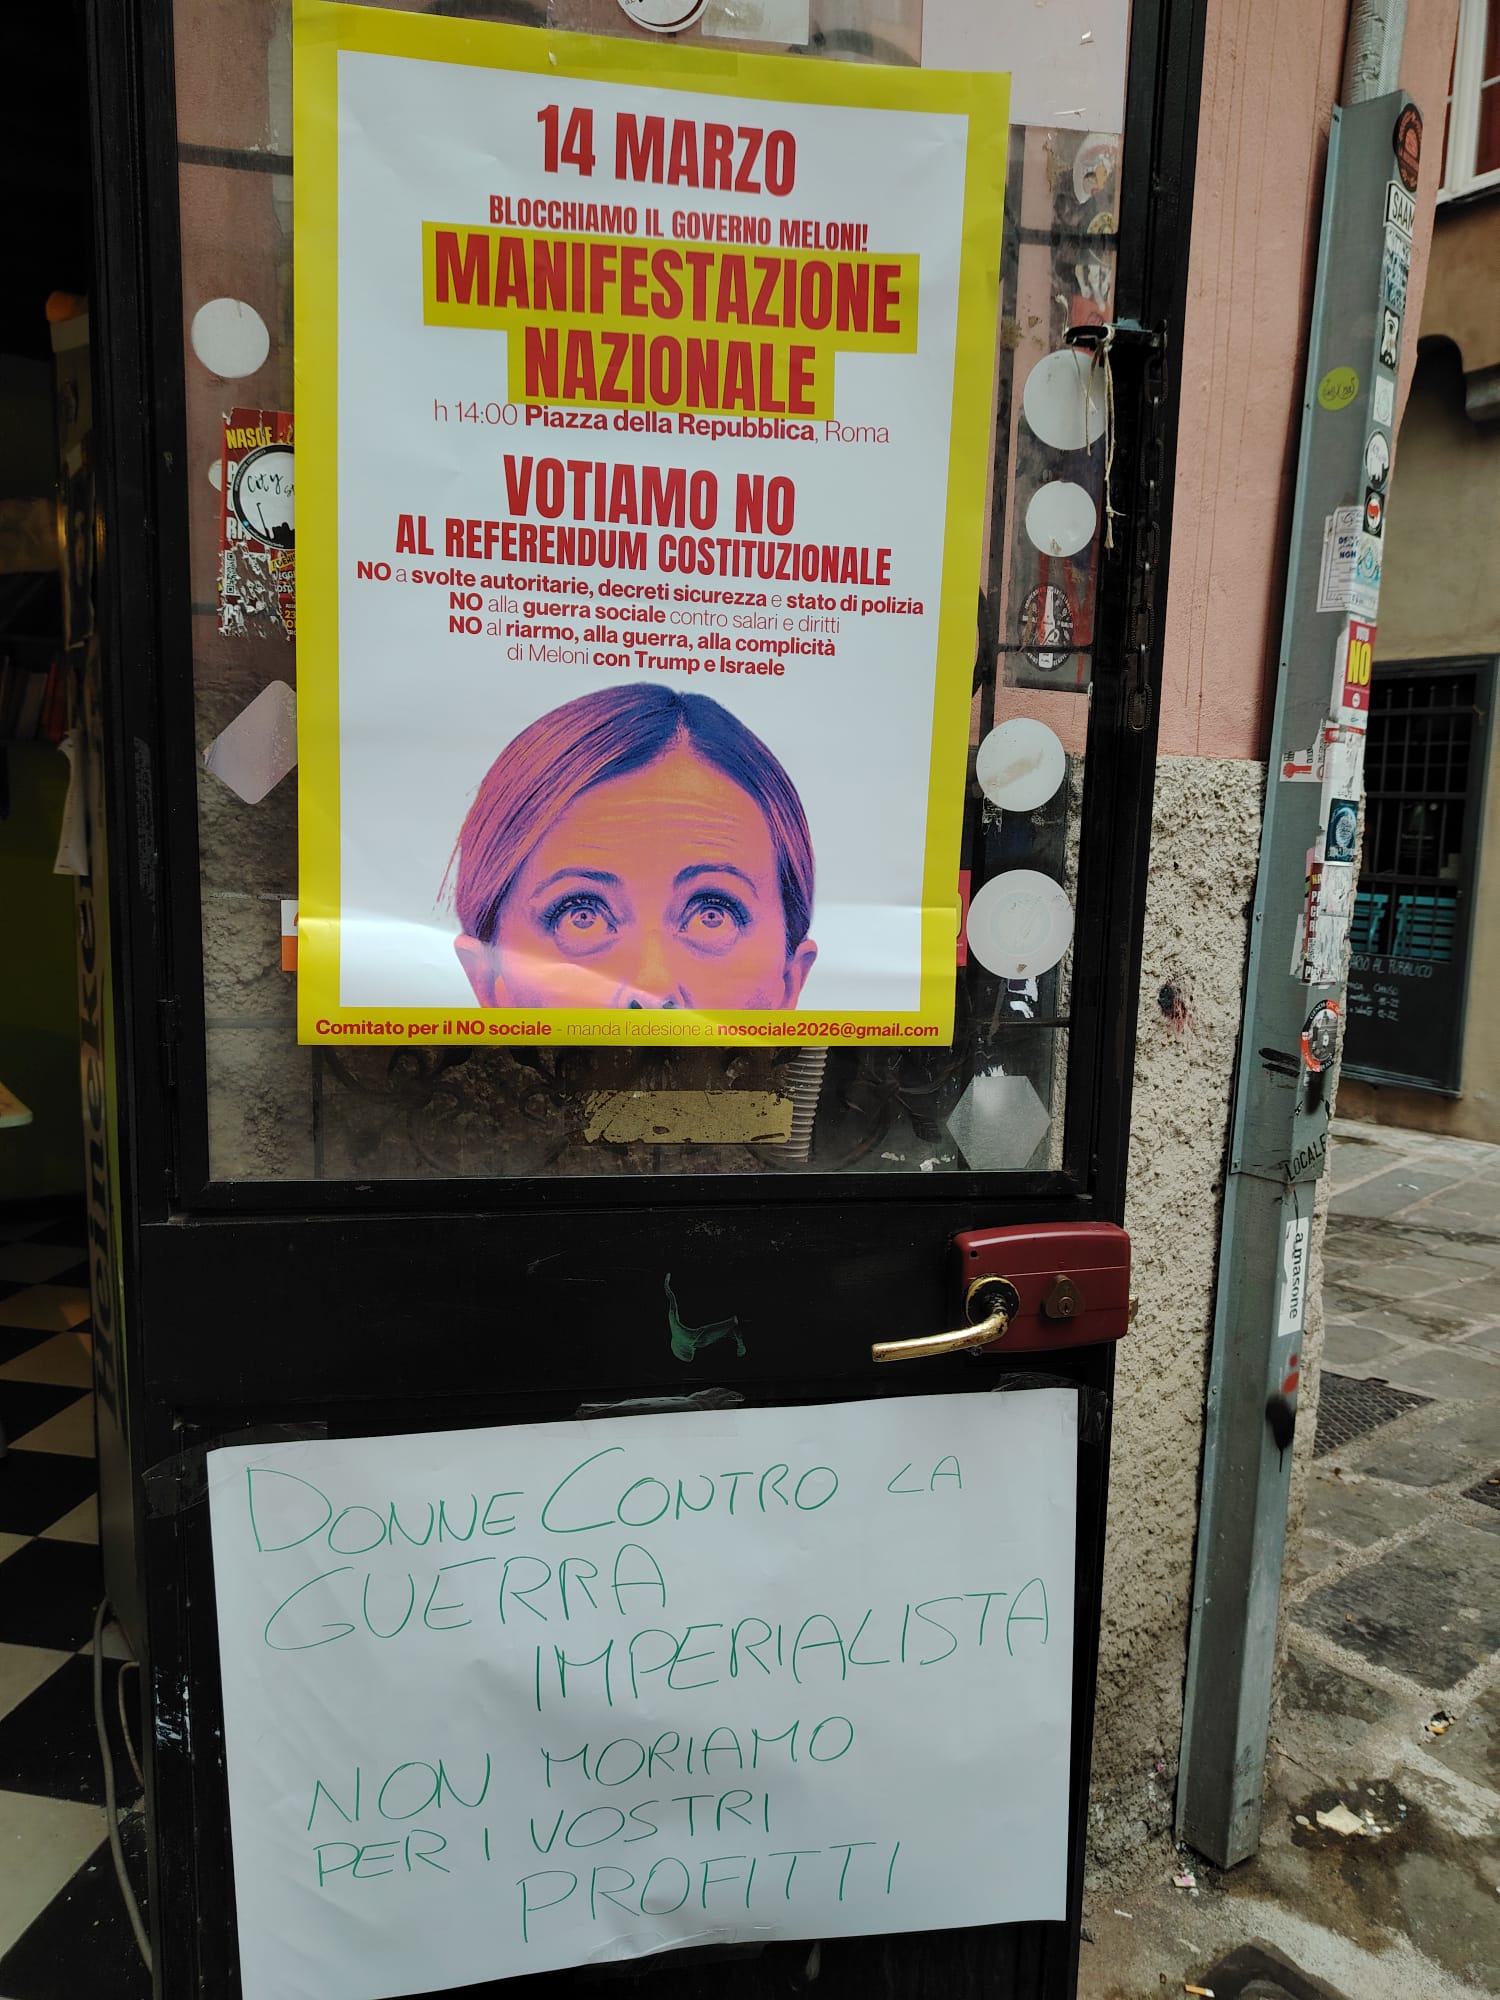 14 MARZO
BLOCCHIAMO IL GOVERNO MELONI!
MANIFESTAZIONE
NAZIONALE
h 14:00 Piazza della Repubblica, Roma
VOTIAMO NO
AL REFERENDUM COSTITUZIONALE
NO a svolte autoritarie, decreti sicurezza e stato di polizia
NO alla guerra sociale contro salari e diritti
NO al riarmo, alla guerra, alla complicità
di Meloni con Trump e Israele
Comitato per il NO sociale - manda l'adesione a nosociale2026@gmail.com
DONNE CONTRO LA
GUERRA
IMPERIALISTA
NON MORIAMO
PER I VOSTRI
PROFITTI
NASCE
city
NO
LOCALE
amasone